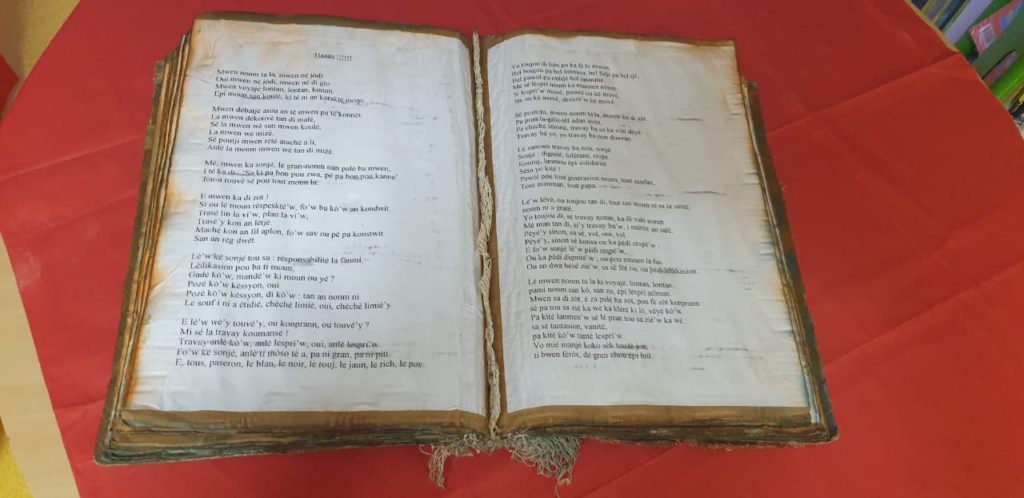 Mwen nonm ta la, mwen né jòdi
Oui mwen né jòdi, mwen né di glo
Mwen voyajé lontan, lontan, lontan.
Epi moun san koulè, ki té ni an karaktè pwòp.
Mwen débatjé mou an tè mwen pa té konnèt.
La mwen dékouvè tan di malè,
Sé la mwen wè san mwen koulé,
La mwen wè mizè.
Sé poutji mwen rété ataché a li,
Anlè la menm mwen wè tan di mizè.
Mé, mwen ka sonjé, lè gran-nonm nan palé ba mwen,
I té ka di: "Sa ki pa bon pou zwa, pé pa bon pou kanna"
Jou-a rouvè sé pou tout moun la.
E mwen ka di zot !
Si ou lé moun réspèskté'w, fo'w ba kò'w an kondwit.
Trasé lin la vi'w, plan la vi'w,
Trasé'y kon an lètjé.
Maché kon an fil aplon, fo'w sav ou pé pa konstwit
San an règ dwèt.
Lè'w ké sonjé tou sa : résponsabilité la fanmi,
Lédikasion pou ba ti moun,
Gadé kò'w, mandé'w ki moun ou yé ?
Pozé kò'w kèssyon, oui
Pozé kò'w kèssyon, di kò'w : tan an nonm ni
Lè souf i ni a étidié, chèché limiè, oui, chèché limiè'y.
E lè'w wè'y touvé'y, ou konprann, ou touvé'y ?
Mi sé la travay koumansé !
Travay anlè kò'w, anlè lespri'w, oui, anlè lespri'w.
Fo'w ké sonjé, anlè ti mòso tè a, pa ni gran, pa ni piti.
E, tous, paseron, le blan, le noir, le rouj, le jaun, le rich, le pov.
Yo toujou di labi pa ka fè le mwàn.
Bel bonjou pa bel lanmou, bel
Bel pawòl pa
Mé sé lespri nonm ka mennen nonm,
Si lespri'w mové, pawòl ou ké mové,
Jes ou ké mové, aksion'w ké mové.
Sé poutchi, mwen nonm ta la, mwen ka di zòt
Pa pran la-glis-sèt sdan ayen.
Pa chaché létoné, travay ba sa ka vini dèyè
Travay ba yo, yo travay ba nou douvan.
Lè zansien travay ba nou, sonjé
Sonjé : dignité, tolérans, rèspé
Kouraj, lanmou épi solidarité
Sésa yo kité !
Pawòl pou tout jénération nonm, tout zenfan,
Tout manman, tout papa.
Lè'w lévé, ou toujou tan di, tout tan nonm té ni la santé,
nonm ni a graté.
Yo toujou di, sé travay nonm, ka fè valè nonm
Mé man tan di, si'y travay ba'w, i mérité an salè.
Péyé'y sinon, sa sé, vol, oui, vol
Péyé'y, sinon sé konsa ou ka pèdi rèspé'w ;
E fo'w sonjé lè'w pèdi respé'w,
Ou ka pèdi dignité'w ; ou pou tounen la fas.
Ou an dwa bésé zié'w, sa sé fòt ou, ou pèdi lédikasion.
Lè mwen nonm ta la ki voyajé, lontan, lontan,
pami nonm san kò, san zo, épi lespri sèlman.
Mwen sa di zòt, é za palé ba zòt, pou fè zòt konprann :
sé pa tou sa zié ka wè ka klere ki lò, véyé kò'w.
Pa kité lanmen'w sé lé pran tou sa zié'w ka wè
sa sé tantasion, vanité,
pa kité kò'w tanté lespri'w
Vo mié manjé koko sèk tou lé jou,
ti bwen féròs, dé gren chouèpi luil.